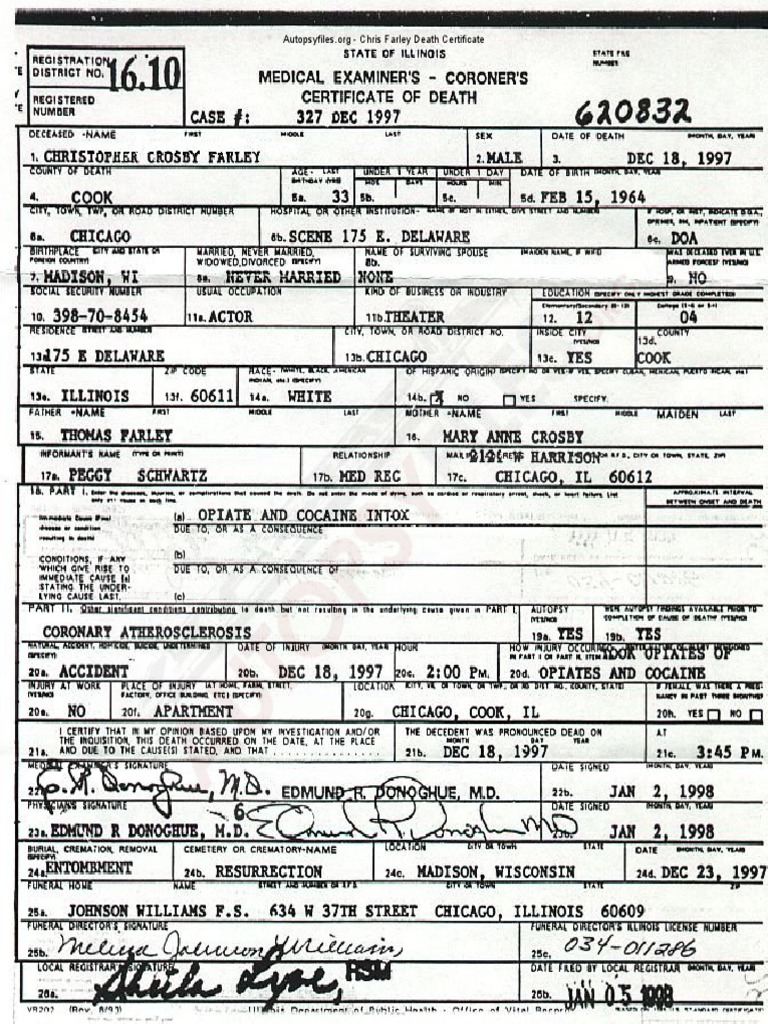 Autopsyfiles.org - Chris Farley Death Certificate
STATE OF ILLINOIS
STATE FILE NUMBER
REGISTRATION DISTRICT NO. 16.10
MEDICAL EXAMINER'S - CORONER'S
CERTIFICATE OF DEATH
REGISTERED NUMBER
CASE #: 327 DEC 1997
620832
DECEASED -NAME FIRST MIDDLE LAST SEX DATE OF DEATH (MONTH, DAY, YEAR)
1. CHRISTOPHER CROSBY FARLEY 2. MALE 3. DEC 18, 1997
COUNTY OF DEATH AGE - LAST BIRTHDAY (YRS) UNDER 1 YEAR MOS. DAYS UNDER 1 DAY HOURS MIN. DATE OF BIRTH (MONTH, DAY, YEAR)
4. COOK 5a. 33 5b. 5c. 5d. FEB 15, 1964
CITY, TOWN, TWP, OR ROAD DISTRICT NUMBER HOSPITAL OR OTHER INSTITUTION- NAME (IF NOT IN EITHER, GIVE STREET AND NUMBER)
6a. CHICAGO 6b. SCENE 175 E. DELAWARE 6c. DOA
BIRTHPLACE (CITY AND STATE OR FOREIGN COUNTRY) MARRIED, NEVER MARRIED, WIDOWED, DIVORCED (SPECIFY) NAME OF SURVIVING SPOUSE (MAIDEN NAME, IF WIFE) WAS DECEASED EVER IN U.S. ARMED FORCES? (YES/NO)
7. MADISON, WI 8a. NEVER MARRIED 8b. NONE 9. NO
SOCIAL SECURITY NUMBER USUAL OCCUPATION KIND OF BUSINESS OR INDUSTRY EDUCATION (SPECIFY ONLY HIGHEST GRADE COMPLETED)
Elementary/Secondary (0-12) College (1-4 or 5+)
10. 398-70-8454 11a. ACTOR 11b. THEATER 12. 12 04
RESIDENCE (STREET AND NUMBER) CITY, TOWN, OR ROAD DISTRICT NO. INSIDE CITY (YES/NO) COUNTY
13a. 175 E DELAWARE 13b. CHICAGO 13c. YES 13d. COOK
STATE ZIP CODE RACE- (WHITE, BLACK, AMERICAN INDIAN, etc.) (SPECIFY) OF HISPANIC ORIGIN? (SPECIFY NO OR YES-IF YES, SPECIFY CUBAN, MEXICAN, PUERTO RICAN, etc.)
13e. ILLINOIS 13f. 60611 14a. WHITE 14b. NO YES SPECIFY:
FATHER -NAME FIRST MIDDLE LAST MOTHER -NAME FIRST MIDDLE MAIDEN LAST
15. THOMAS FARLEY 16. MARY ANNE CROSBY
INFORMANT'S NAME (TYPE OR PRINT) RELATIONSHIP
17a. PEGGY SCHWARTZ 17b. MED REC 17c. 2121 W HARRISON CHICAGO, IL 60612
18. PART I. Enter the diseases, injuries, or complications that caused the death. Do not enter the mode of dying, such as cardiac or respiratory arrest, shock, or heart failure. List only one cause on each line.
APPROXIMATE INTERVAL BETWEEN ONSET AND DEATH
Immediate Cause (Final disease or condition resulting in death)
(a) OPIATE AND COCAINE INTOX
DUE TO, OR AS A CONSEQUENCE
CONDITIONS, IF ANY WHICH GIVE RISE TO IMMEDIATE CAUSE (a) STATING THE UNDERLYING CAUSE LAST.
(b)
DUE TO, OR AS A CONSEQUENCE OF
(c)
PART II. Other significant conditions contributing to death but not resulting in the underlying cause given in PART I. AUTOPSY (YES/NO) WERE AUTOPSY FINDINGS AVAILABLE PRIOR TO COMPLETION OF CAUSE OF DEATH? (YES/NO)
CORONARY ATHEROSCLEROSIS 19a. YES 19b. YES
NATURAL, ACCIDENT, HOMICIDE, SUICIDE, UNDETERMINED (SPECIFY) DATE OF INJURY (MONTH, DAY, YEAR) HOUR HOW INJURY OCCURRED
20a. ACCIDENT 20b. DEC 18, 1997 20c. 2:00 PM. 20d. TOOK OPIATES OF OPIATES AND COCAINE
INJURY AT WORK (YES/NO) PLACE OF INJURY (AT HOME, FARM, STREET, FACTORY, OFFICE BUILDING, ETC) (SPECIFY) LOCATION IF FEMALE, WAS THERE A PREGNANCY IN PAST THREE MONTHS?
20e. NO 20f. APARTMENT 20g. CHICAGO, COOK, IL 20h. YES NO
I CERTIFY THAT IN MY OPINION BASED UPON MY INVESTIGATION AND/OR THE INQUISITION, THIS DEATH OCCURRED ON THE DATE, AT THE PLACE
21a. AND DUE TO THE CAUSE(S) STATED, AND THAT ............
THE DECEDENT WAS PRONOUNCED DEAD ON MONTH DAY YEAR AT
21b. DEC 18, 1997 21c. 3:45 PM.
MEDICAL EXAMINER'S SIGNATURE DATE SIGNED (MONTH, DAY, YEAR)
22a. E. R. Donoghue, M.D. EDMUND R. DONOGHUE, M.D. 22b. JAN 2, 1998
PHYSICIAN'S SIGNATURE DATE SIGNED (MONTH, DAY, YEAR)
23a. EDMUND R DONOGHUE, M.D. Edmund R. Donoghue MD 23b. JAN 2, 1998
BURIAL, CREMATION, REMOVAL (SPECIFY) CEMETERY OR CREMATORY-NAME LOCATION CITY OR TOWN STATE DATE (MONTH, DAY, YEAR)
24a. ENTOMBMENT 24b. RESURRECTION 24c. MADISON, WISCONSIN 24d. DEC 23, 1997
FUNERAL HOME NAME STREET AND NUMBER OR R.F.D. CITY OR TOWN STATE ZIP
25a. JOHNSON WILLIAMS F.S. 634 W 37TH STREET CHICAGO, ILLINOIS 60609
FUNERAL DIRECTOR'S SIGNATURE FUNERAL DIRECTOR'S ILLINOIS LICENSE NUMBER
25b. Melissa Johnson Williams, 25c. 034-011286
LOCAL REGISTRAR'S SIGNATURE DATE FILED BY LOCAL REGISTRAR (MONTH, DAY, YEAR)
26a. Sheila Lyne, RSM 26b. JAN 05 1998
VR202 (Rev. 8/93) Illinois Department of Public Health - Office of Vital Records